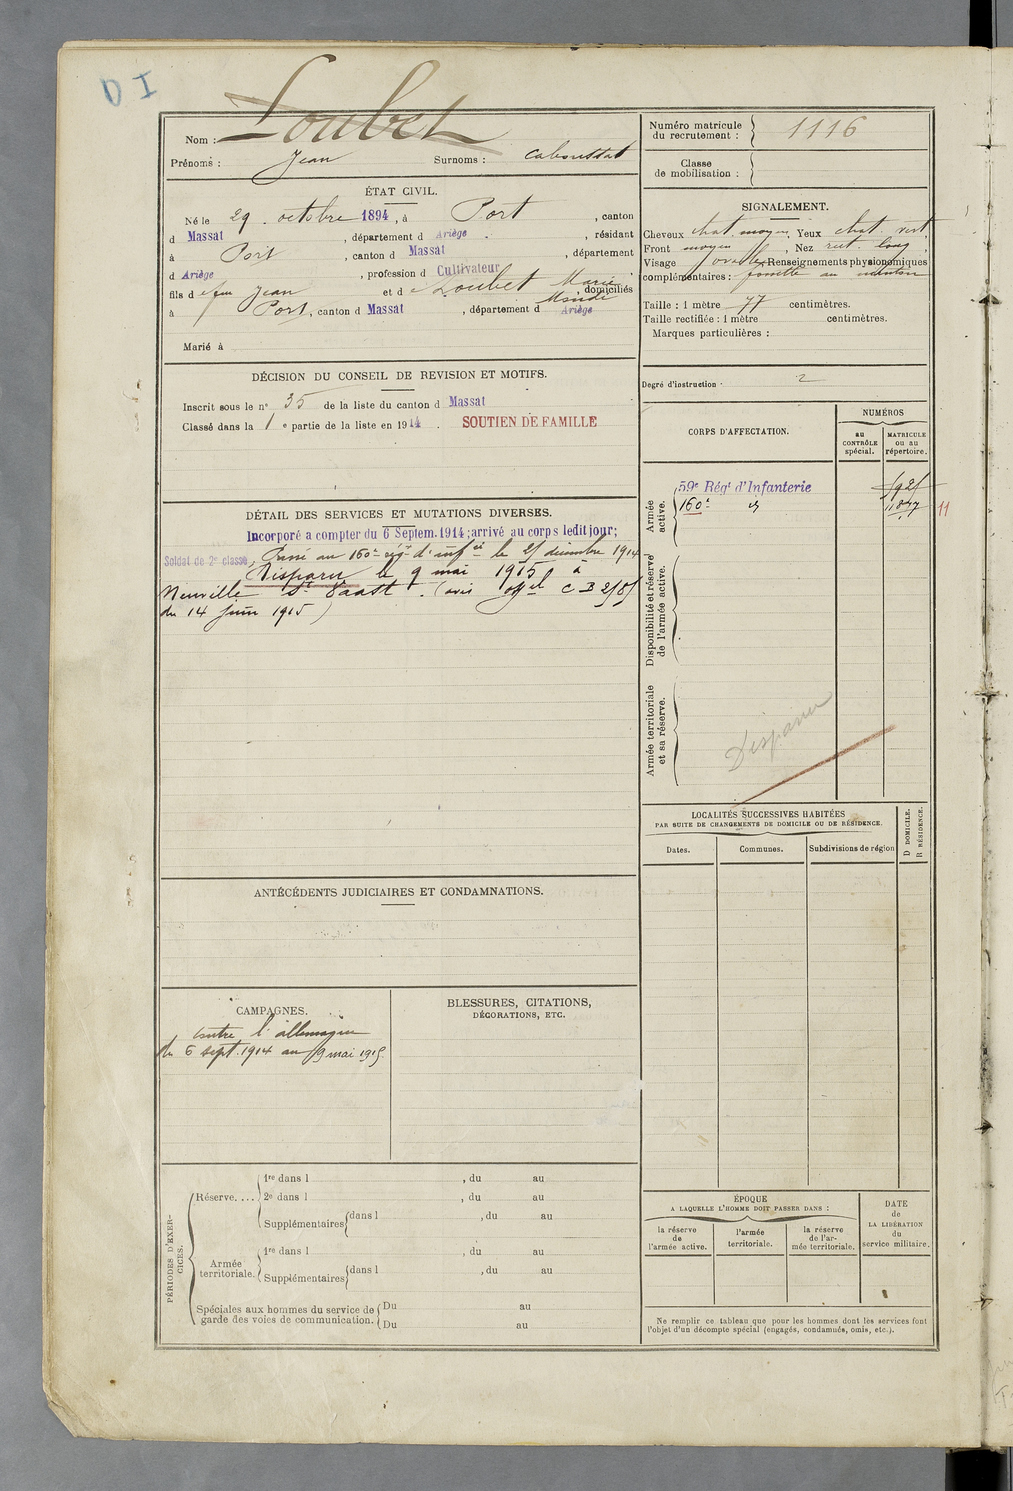 D I
Nom : Loubet
Prénoms : Jean Surnoms : Caboussat
Numéro matricule du recrutement : 1116
Classe de mobilisation :
ÉTAT CIVIL.
Né le 29 octobre 1894, à Port, canton
d Massat, département d Ariège, résidant
à Port, canton d Massat, département
d Ariège, profession d Cultivateur
fils d e feu Jean et d e Loubet Marie, domiciliés
à Port, canton d Massat, département d Ariège
Marié à
SIGNALEMENT.
Cheveux chat. moyen, Yeux chat. vert
Front moyen, Nez rect. long,
Visage ovale Renseignements physionomiques
complémentaires : fossette au menton
Taille : 1 mètre 77 centimètres.
Taille rectifiée : 1 mètre centimètres.
Marques particulières :
Degré d'instruction · 2
DÉCISION DU CONSEIL DE REVISION ET MOTIFS.
Inscrit sous le n° 35 de la liste du canton d Massat
Classé dans la 1 e partie de la liste en 1914. SOUTIEN DE FAMILLE
CORPS D'AFFECTATION.
NUMÉROS
au CONTRÔLE spécial.
MATRICULE ou au répertoire.
Armée active.
59e Régt d'Infanterie
160e
11
Disponibilité et réserve de l'armée active.
Armée territoriale et sa réserve.
Disparu
DÉTAIL DES SERVICES ET MUTATIONS DIVERSES.
Incorporé à compter du 6 Septem. 1914; arrivé au corps ledit jour;
Soldat de 2e classe, Passé au 160e rég. d'infie le 21 décembre 1914
Disparu le 9 mai 1915 à
Neuville St Vaast. (avis offel C B 2181
du 14 juin 1915)
LOCALITÉS SUCCESSIVES HABITÉES
PAR SUITE DE CHANGEMENTS DE DOMICILE OU DE RÉSIDENCE.
Dates. Communes. Subdivisions de région
D DOMICILE.
R RÉSIDENCE.
ANTÉCÉDENTS JUDICIAIRES ET CONDAMNATIONS.
CAMPAGNES.
Contre l'allemagne
du 6 sept. 1914 au 9 mai 1915
BLESSURES, CITATIONS,
DÉCORATIONS, ETC.
PÉRIODES D'EXERCICES.
Réserve....
1re dans l , du au
2e dans l , du au
Supplémentaires dans l , du au
Armée territoriale.
1re dans l , du au
Supplémentaires dans l , du au
Spéciales aux hommes du service de garde des voies de communication.
Du au
Du au
ÉPOQUE
A LAQUELLE L'HOMME DOIT PASSER DANS :
la réserve de l'armée active.
l'armée territoriale.
la réserve de l'armée territoriale.
DATE de LA LIBÉRATION du service militaire.
Ne remplir ce tableau que pour les hommes dont les services font
l'objet d'un décompte spécial (engagés, condamnés, omis, etc.).